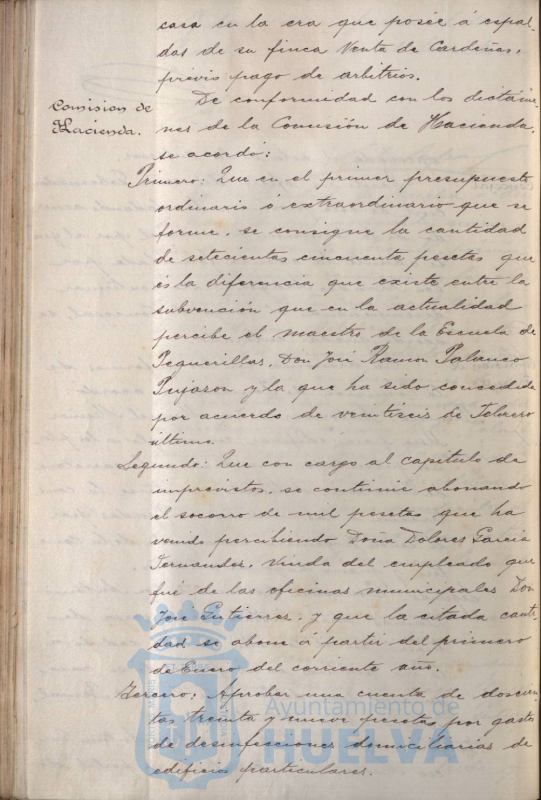 casa en la era que posée á espal-
das de su finca Venta de Cardeñas,
previo pago de arbitrios.
Comision de
Hacienda.
De conformidad con los dictáme-
nes de la Comisión de Hacienda,
se acordó:
Primero: Que en el primer presupuesto
ordinario ó extraordinario que se
forme, se consigne la cantidad
de setecientas cincuenta pesetas que
es la diferencia que existe entre la
subvención que en la actualidad
percibe el maestro de la Escuela de
Peguerillas, Don José Ramon Palanco
Pujazon y la que ha sido concedida
por acuerdo de veintiseis de Febrero
último.
Segundo: Que con cargo al capitulo de
imprevistos, se continúe abonando
el socorro de mil pesetas que ha
venido percibiendo Doña Dolores Garcia
Fernandez, Viuda del empleado que
fué de las oficinas municipales Don
José Gutierrez, y que la citada canti-
dad se abone á partir del primero
de Enero del corriente año.
Tercero: Aprobar una cuenta de doscien-
tas treinta y nueve pesetas por gastos
de desinfecciones domiciliarias de
edificios particulares.
Ayuntamiento de
HUELVA